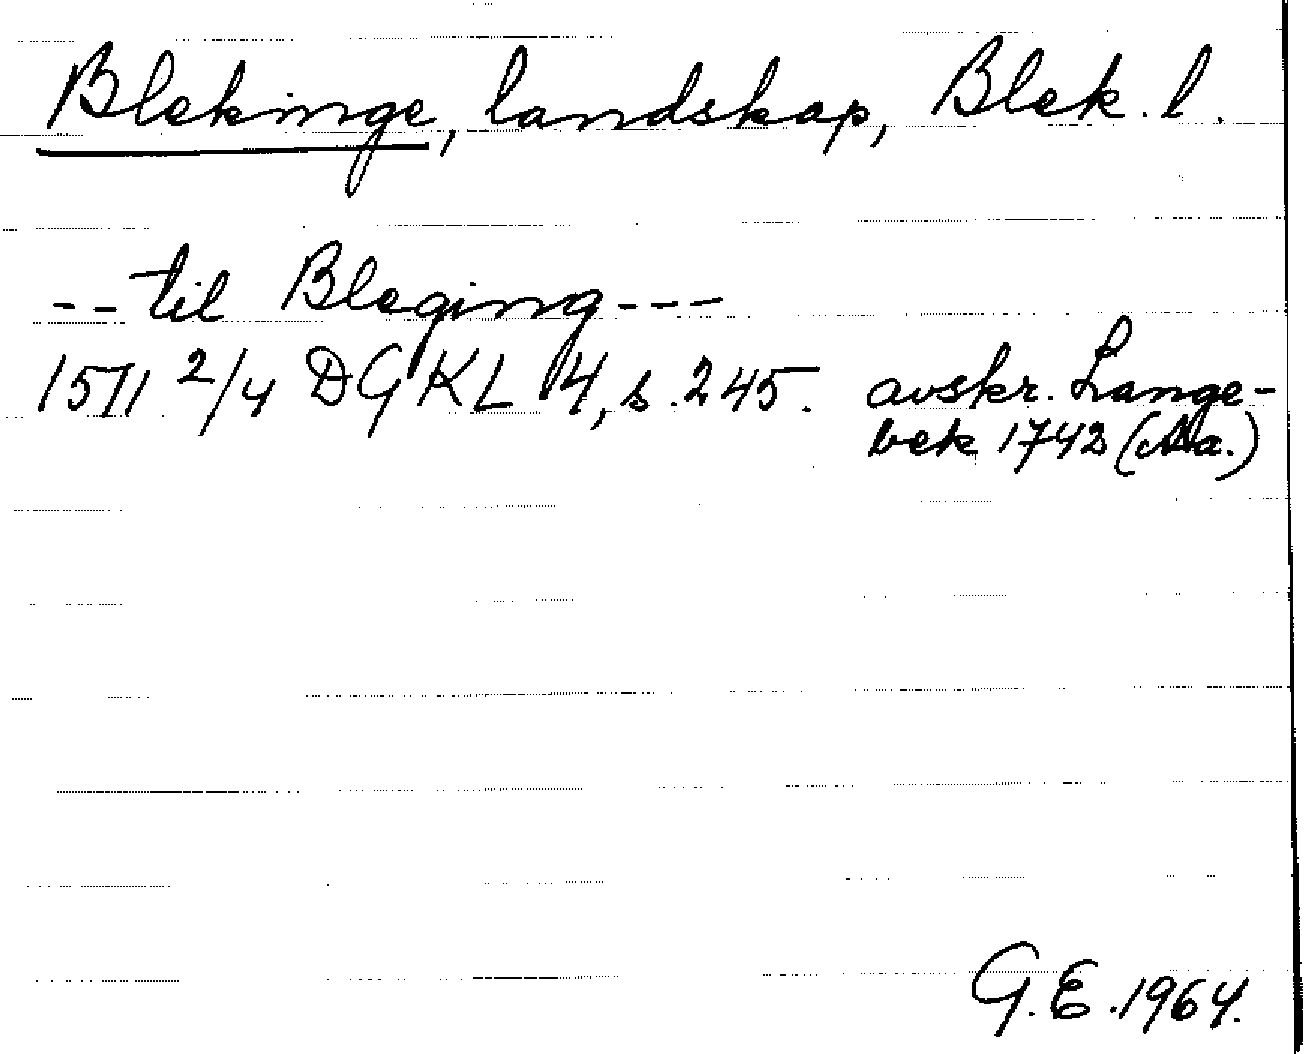 Blekinge, landskap, Blek. l.
-- til Bleging ---
1571 2/4 DGKL 4, s. 245. avskr. Lange-
bek 1742 (Aa.)
G.E. 1964.